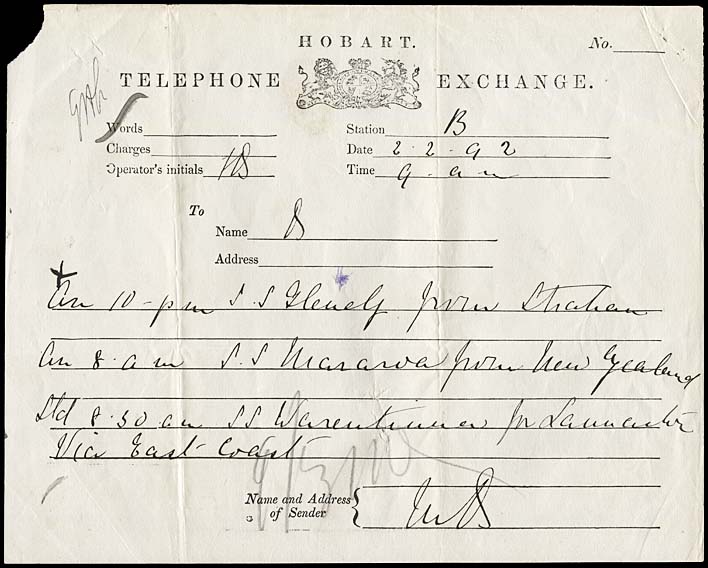 HOBART.
No.
TELEPHONE EXCHANGE.
Words
Station B
Charges
Date 2.2.92
Operator's initials HB
Time 9 am
To
Name B
Address
Arr 10-pm S.S Glenelg from Strahan
Arr 8.am S.S Mararoa from New Zealand
Sld 8.30 am SS Warentinna for Launceston
Via East Coast
Name and Address
of Sender